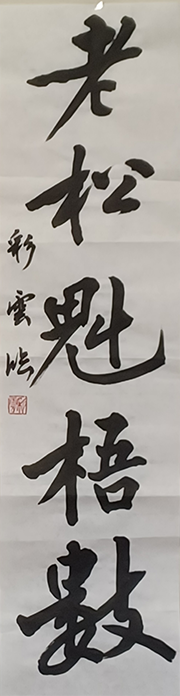 老松魁梧數
彩雲